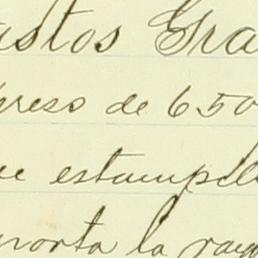 astos Gra
preso de 650
ue estampill
porta la